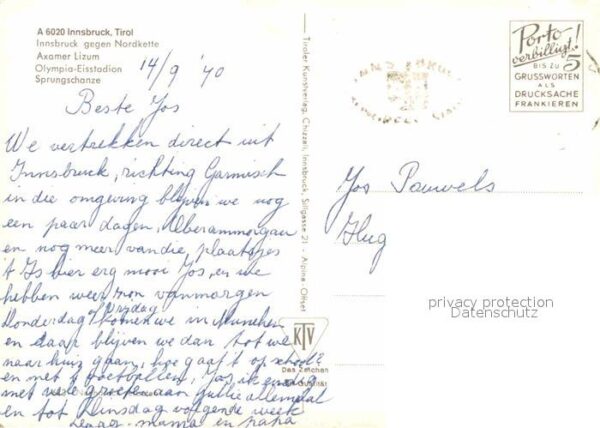 A 6020 Innsbruck, Tirol
Innsbruck gegen Nordkette
Axamer Lizum
Olympia-Eisstadion
Sprungschanze
14/9 '70
Beste Jos
We vertrekken direct uit
Innsbruck, richting Garmisch
in die omgeving blijven we nog
een paar dagen, Oberammergau
en nog meer van die, plaatsjes
't Is hier erg mooi Jos, en we
hebben weer zon vanmorgen
Donderdag of Vrydag komen we in Munchen
en daar blijven we dan tot we
naar huis gaan, hoe gaat 't op school?
en met 't voetballen, Jos ik eindig
met vele groeten aan jullie allemaal
en tot Dinsdag volgende week
Daag. mama en papa
Tiroler Kunstverlag, Chizzali, Innsbruck, Sillgasse 21 - Alpina-Offset
KTV
Das Zeichen
für Qualität
Porto
verbilligt!
BIS ZU 5
GRUSSWORTEN
ALS
DRUCKSACHE
FRANKIEREN
Jos Pauwels
privacy protection
Datenschutz